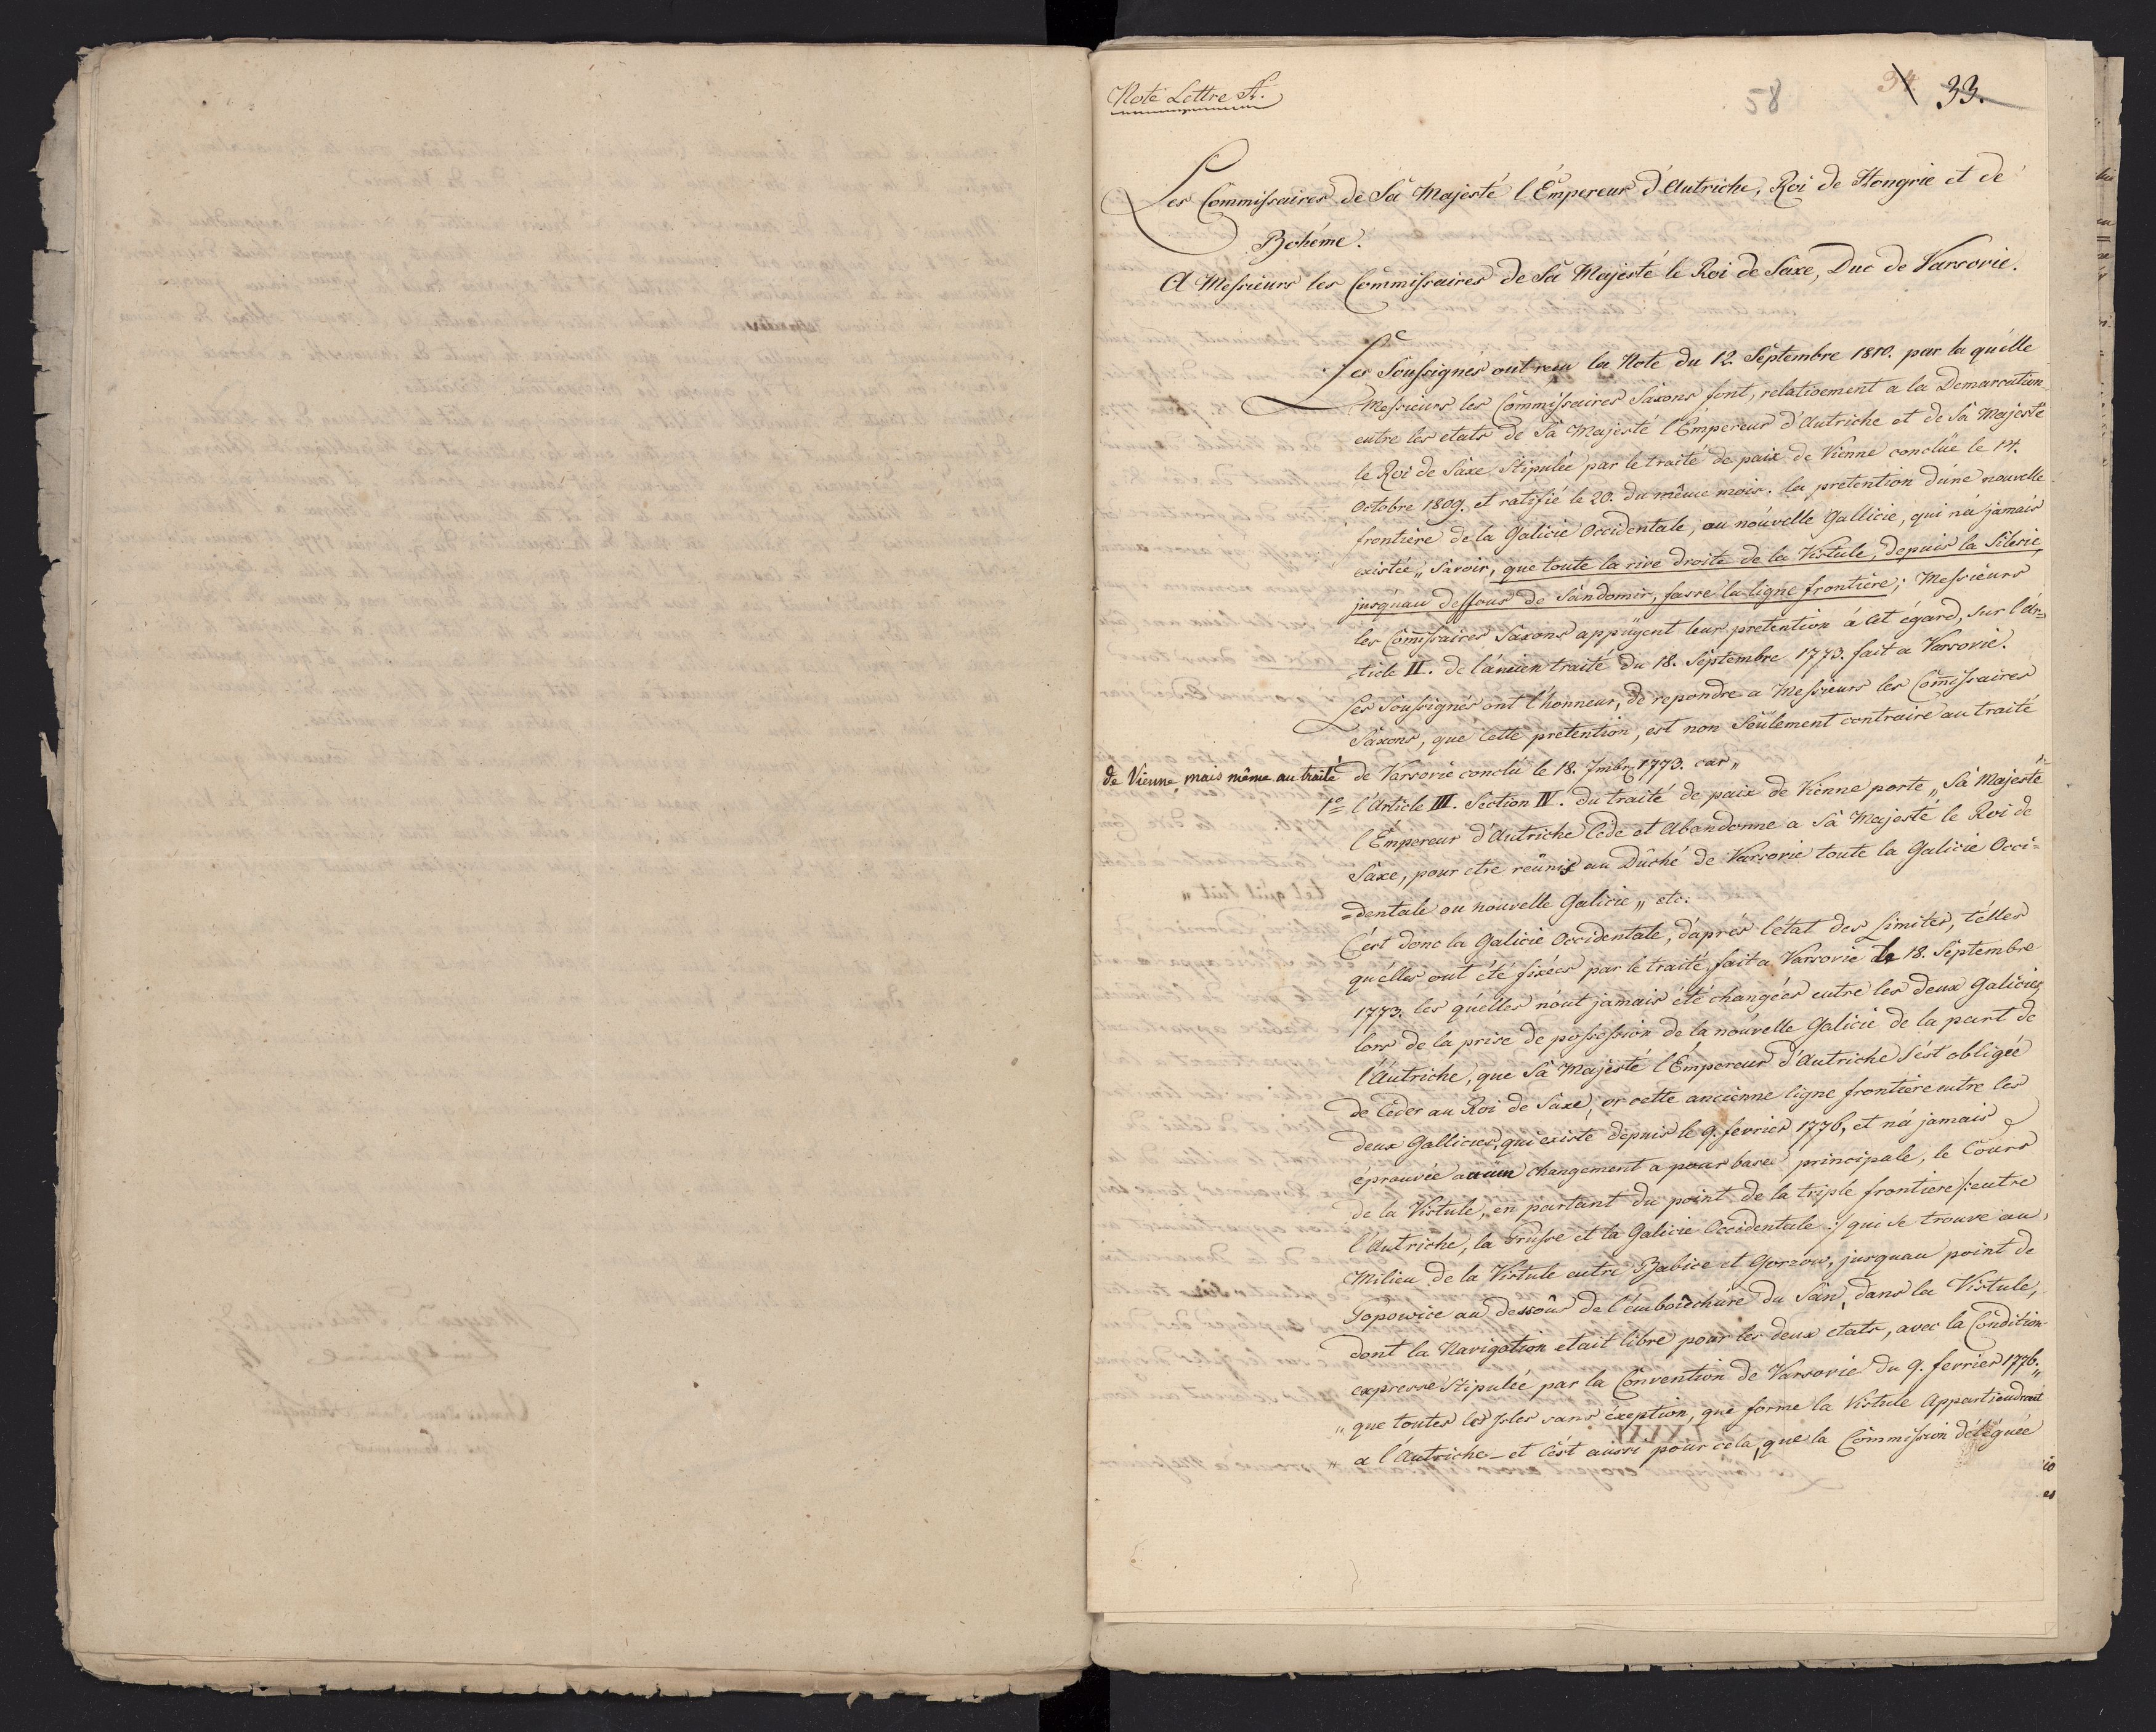 Note Lettre A.
58
34.
33.
Les Commissaires de Sa Majesté l'Empereur d'Autriche, Roi de Hongrie et de
Bohéme.
A Messieurs les Commissaires de Sa Majesté le Roi de Saxe, Duc de Varsovie.
Les Soussignés ont reçu la Note du 12. Septembre 1810. par la quélle
Messieurs les Commissaires Saxons font, relativement a la Demarcation
entre les etats de Sa Majesté l'Empereur d'Autriche et de Sa Majesté
le Roi de Saxe Stipulée par le traité de paix de Vienne conclüe le 14.
Octobre 1809. et ratifié le 20. du même mois. la pretention d'une nouvelle
frontiere de la Galicie Occidentale, ou nouvelle Gallicie, qui n'a jamais
existée „ Savoir, que toute la rive droite de la Vistule, depuis la Silesie,
jusqu'au deffous de Sandomir, fasse la ligne frontiere; Messieurs
les Commissaires Saxons appuyent leur pretention à cet égard, sur l'Ar-
ticle II. de l'ancien traité du 18. Septembre 1773. fait a Varsovie.
Les Soussignés ont l'honneur, de repondre a Messieurs les Commissaires
Saxons, que cette pretention, est non Seulement contraire au traité
de Vienne, mais même au traité de Varsovie conclu le 18. 7mbre 1773. car „
1o l'Article III. Section IV. du traité de paix de Vienne porte „ Sa Majesté
l'Empereur d'Autriche Cede et Abandonne a Sa Majesté le Roi de
Saxe, pour etre reünis au Duché de Varsovie toute la Galicie Occi=
=dentale ou nouvelle Galicie „ etc.
C'est donc la Galicie Occidentale, d'aprés l'état des Limites, télles
qu'elles ont été fixées par le traité, fait a Varsovie le 18. Septembre
1773. les quélles n'ont jamais été changées entre les deux Galicies,
lors de la prise de possession de la nouvelle Galicie de la part de
l'Autriche, que Sa Majesté l'Empereur d'Autriche s'est obligée
de Céder au Roi de Saxe, or cette ancienne ligne frontiere entre les
deux Gallicies, qui existe depuis le 9. fevrier 1776, et n'a jamais
éprouvée aucun changement a pour base principale, le Cours
de la Vistule, en partant du point de la triple frontiere /: entre
l'Autriche, la Prusse et la Galicie Occidentale :/ qui se trouve au
Milieu de la Vistule entre Babice et Gorzow, jusquau point de
Popowice au dessous de l'embouchure du San, dans la Vistule,
dont la Navigation etait libre pour les deux etats, avec la Condition
expresse Stipulée par la Convention de Varsovie du 9. fevrier 1776. „
„ que toutes les Isles sans éxeption, que forme la Vistule Appartiendrait
„ a l'Autriche – et c'est aussi pour cela, que la Commission déléguée